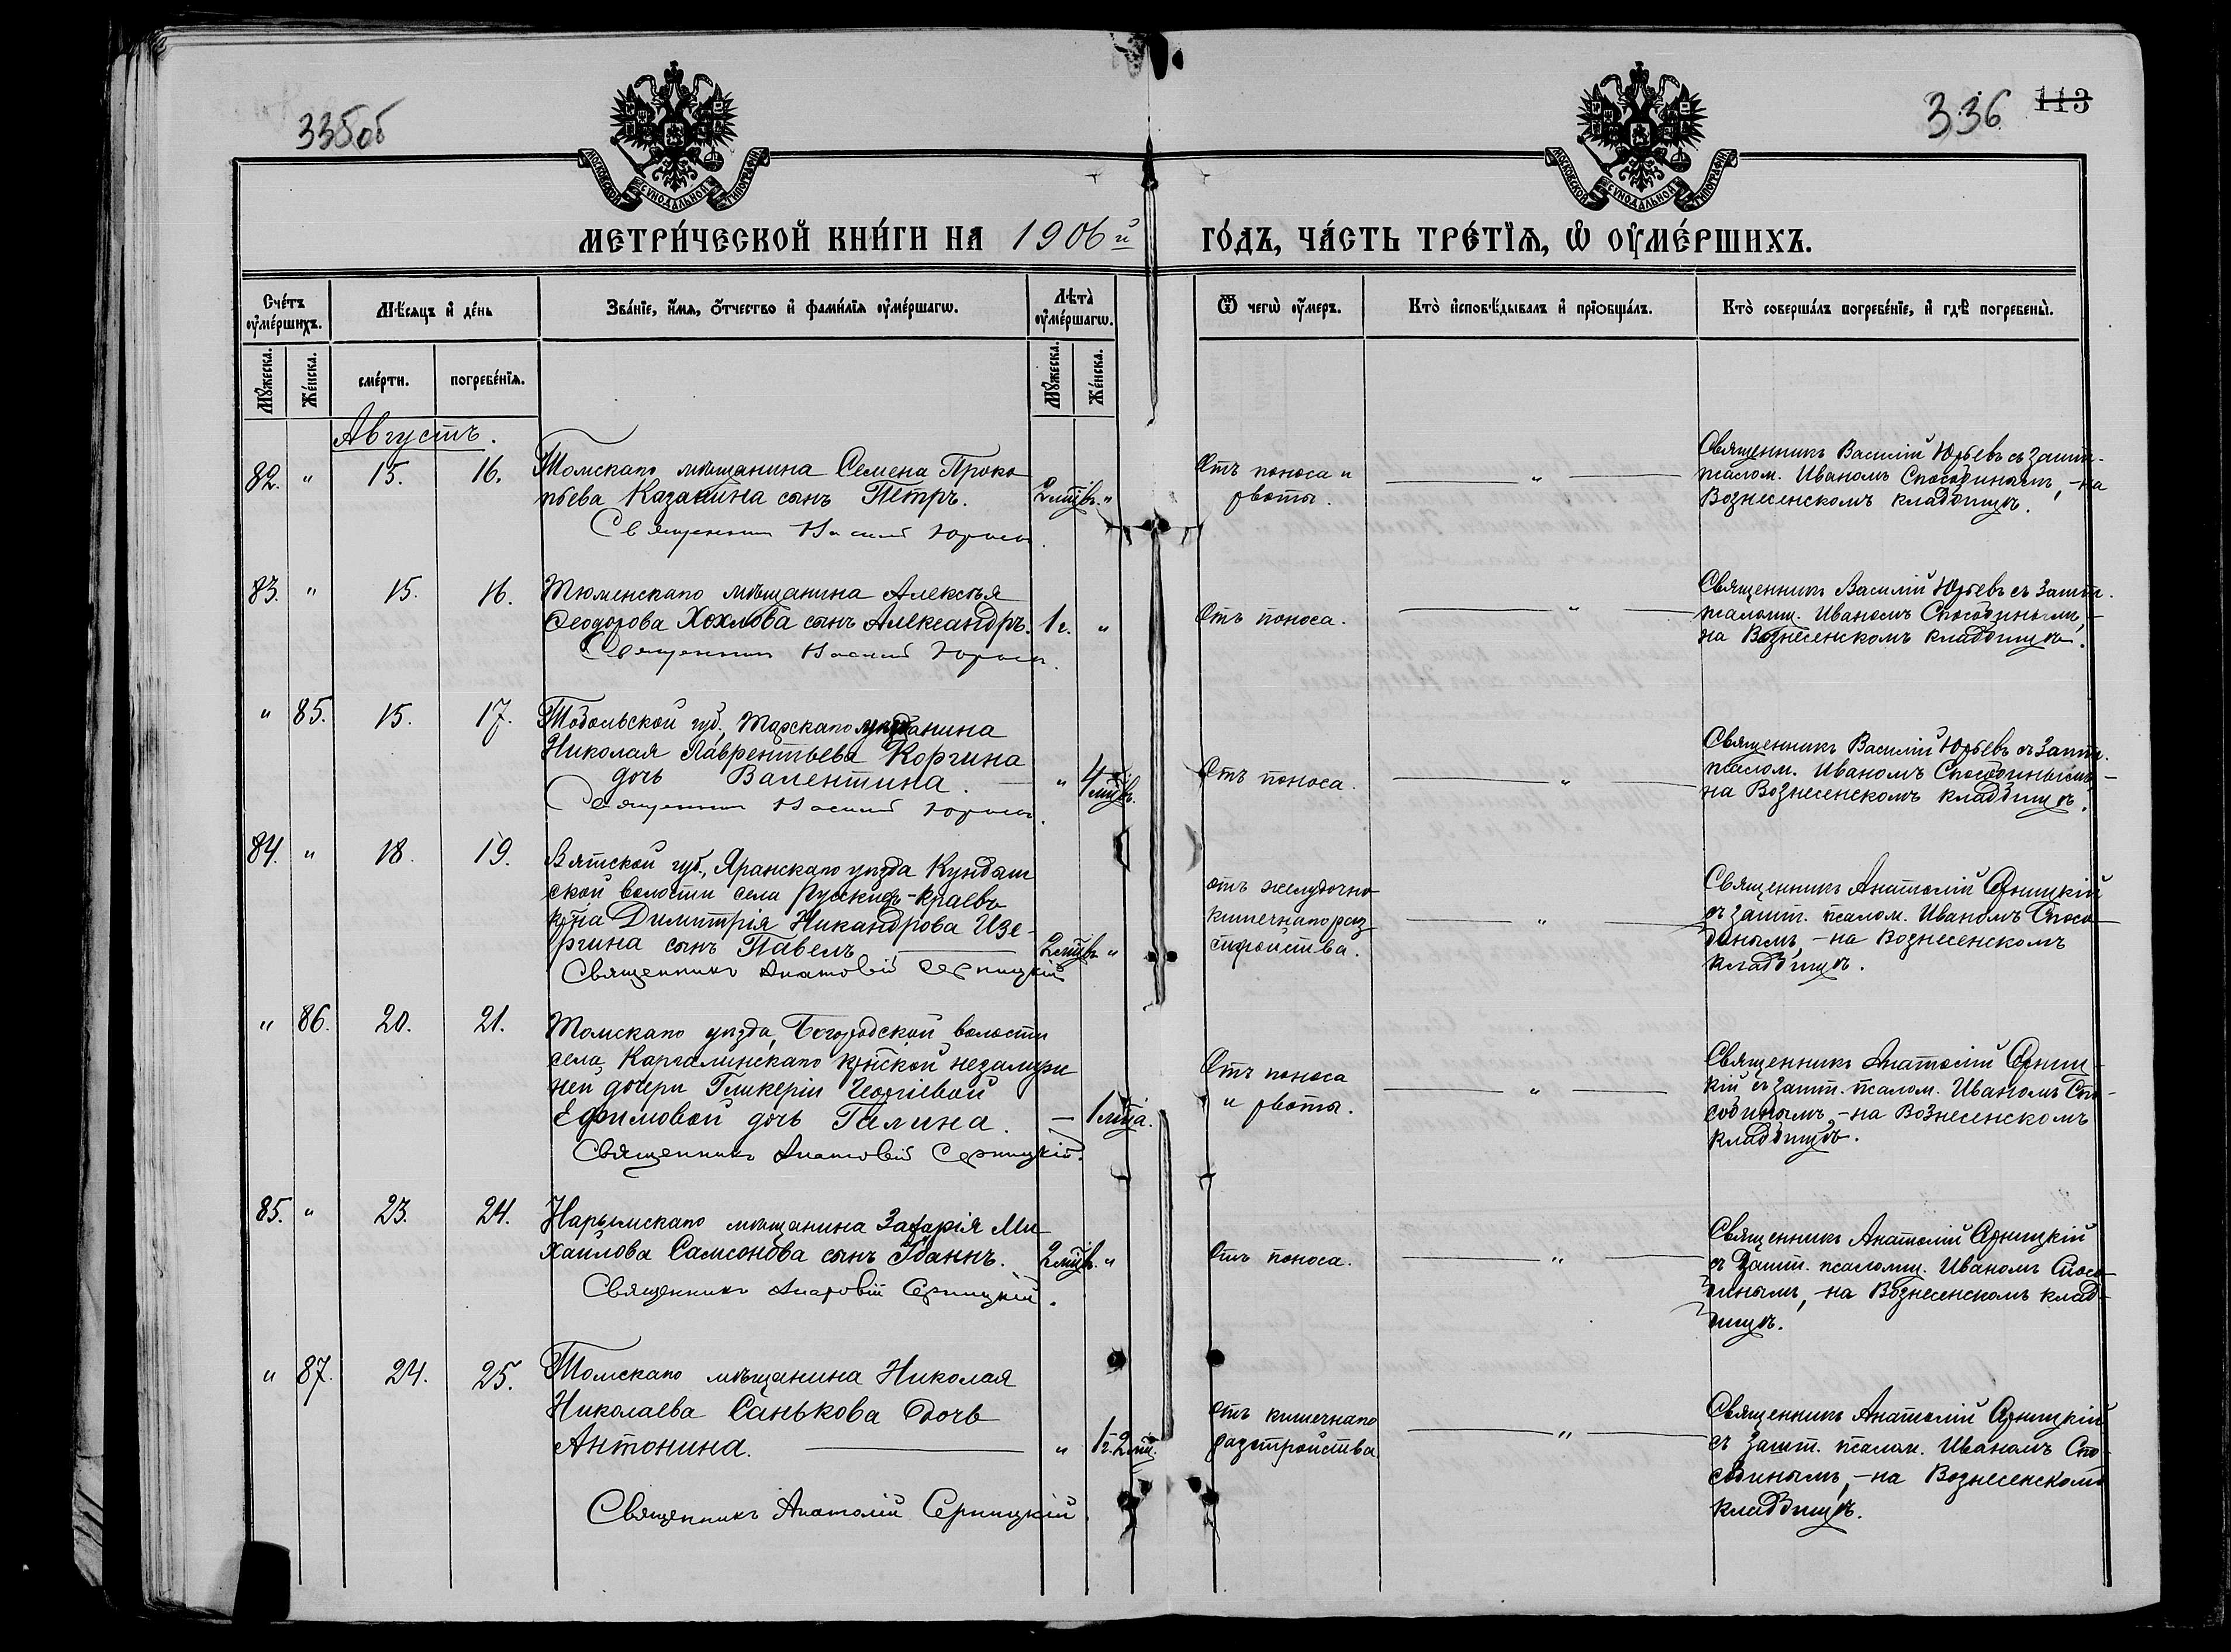 335об
336
113
МОСКОВСКОЙ СѴНОДАЛЬНОЙ ТИПОГРАФІИ
МОСКОВСКОЙ СѴНОДАЛЬНОЙ ТИПОГРАФІИ
МЕТРИ́ЧЕСКОЙ КНИ́ГИ НА 1906й ГО́ДЪ, ЧА́СТЬ ТРЕ́ТІѦ, Ѡ ОУ҆МЕ́РШИХЪ.
Сче́тъ оу҆ме́ршихъ.
Мѣ́сяцъ и҆ де́нь
Зва́нїе, и҆́мѧ, ѻ҆́тчество и҆ фами́лїѧ оу҆ме́ршагѡ.
Лѣта̀ оу҆ме́ршагѡ.
Ѿ чегѡ̀ оу҆́меръ.
Кто̀ и҆сповѣ́дывалъ и҆ прїѻбща́лъ.
Кто̀ соверша́лъ погребе́нїе, и҆ гдѣ̀ погребены̀.
Му́жеска.
Же́нска.
сме́рти.
погребе́нїѧ.
Му́жеска.
Же́нска.
Августъ.
82. " 15. 16. Томскаго мѣщанина Семена Проко
пьева Казанина сынъ Петръ. 2 мцв. "
Священник Василий Юрьев.
Отъ поноса и
рвоты. "
Священникъ Василій Юрьевъ съ зашт.
псалом. Иваномъ Способинымъ, - на
Вознесенскомъ кладбищѣ.
83. " 15. 16. Тюменскаго мѣщанина Алексѣя
Ѳеодорова Хохлова сынъ Александръ. 1 г. "
Священник Василий Юрьев.
Отъ поноса. "
Священникъ Василій Юрьевъ съ зашт.
псаломщ. Иваномъ Способинымъ, -
на Вознесенскомъ кладбищѣ.
" 85. 15. 17. Тобольской губ., Тарскаго мѣщанина
Николая Лаврентьева Коргина
дочь Валентина. " 4 мцв.
Священник Василий Юрьев.
Отъ поноса. "
Священникъ Василій Юрьевъ съ зашт.
псалом. Иваномъ Способинымъ, -
на Вознесенскомъ кладбищѣ.
84. " 18. 19. Вятской губ., Яранскаго уѣзда Кундыш
ской волости села Русскихъ-Краевъ
кр-на Димитрія Никандрова Изе-
ргина сынъ Павелъ 2 мцв. "
Священникъ Анатолій Серницкій
отъ желудочно-
кишечнаго раз-
стройства. "
Священникъ Анатолій Серницкій
съ зашт. псалом. Иваномъ Спосо-
бинымъ, - на Вознесенскомъ
кладбищѣ.
" 86. 20. 21. Томскаго уѣзда, Богородской волости
села Каргалинскаго кр-нской незамуж
ней дочери Гликеріи Георгіевой
Ефимовой дочь Галина. — 1 мца.
Священникъ Анатолій Серницкій.
Отъ поноса
и рвоты. "
Священникъ Анатолій Серниц-
кій съ зашт. псалом. Иваномъ Спо-
собинымъ, - на Вознесенскомъ
кладбищѣ.
85. " 23. 24. Нарымскаго мѣщанина Захарія Ми-
хаилова Самсонова сынъ Іоаннъ. 2 мцв. "
Священникъ Анатолій Серницкій.
Отъ поноса. "
Священникъ Анатолій Серницкій
съ зашт. псаломщ. Иваномъ Спосо-
бинымъ, - на Вознесенскомъ клад-
бищѣ.
" 87. 24. 25. Томскаго мѣщанина Николая
Николаева Санькова дочь
Антонина. " 1 г. 2 мц.
Священникъ Анатолій Серницкій
Отъ кишечнаго
разстройства "
Священникъ Анатолій Серницкій
съ зашт. псалом. Иваномъ Спо-
собинымъ, - на Вознесенскомъ
кладбищѣ.